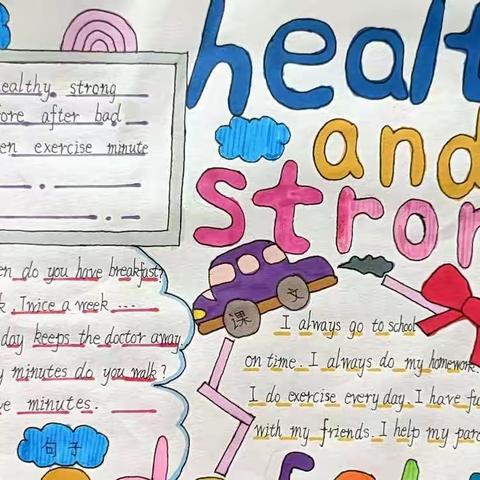 healt
and
stron
healthy strong
before after bad
exercise minute
do you have breakfast?
Twice a week ...
day keeps the doctor away
minutes do you walk?
minutes.
句子
课文
I always go to school
on time. I always do my homework.
I do exercise every day. I have fu
with my friends. I help my pare